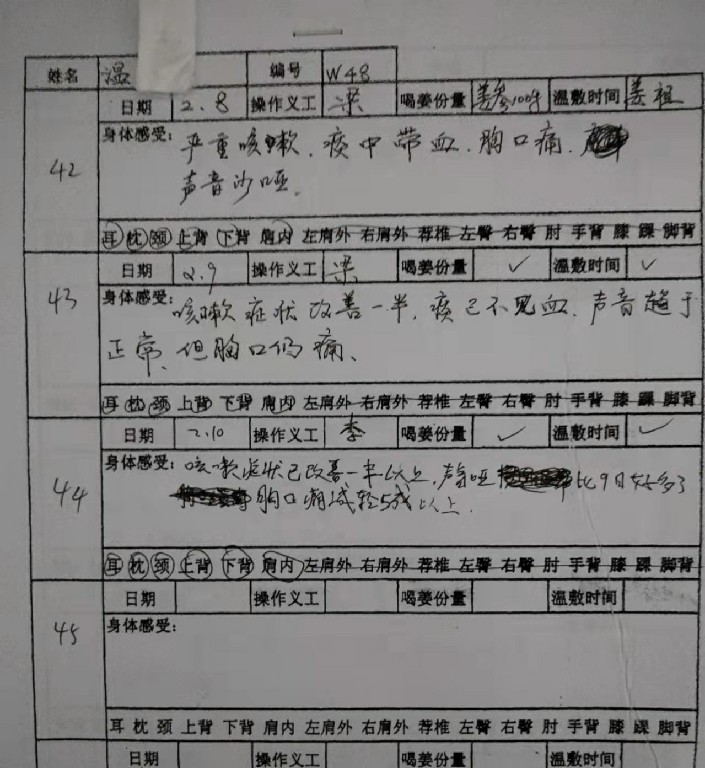 姓名 温 编号 W48
42 日期 2.8 操作义工 梁 喝姜份量 温敷时间 姜祖
身体感受: 严重咳嗽、痰中带血、胸口痛、
声音沙哑。
耳 枕 颈 上背 下背 肩内 左肩外 右肩外 荐椎 左臀 右臀 肘 手背 膝 踝 脚背
43 日期 2.9 操作义工 梁 喝姜份量 ✓ 温敷时间 ✓
身体感受: 咳嗽症状改善一半,痰已不见血、声音趋于
正常、但胸口仍痛、
耳 枕 颈 上背 下背 肩内 左肩外 右肩外 荐椎 左臀 右臀 肘 手背 膝 踝 脚背
44 日期 2.10 操作义工 李 喝姜份量 ✓ 温敷时间 ✓
身体感受: 咳嗽症状已改善一半以上,声音哑 比9日好多了
胸口痛减轻5成以上.
耳 枕 颈 上背 下背 肩内 左肩外 右肩外 荐椎 左臀 右臀 肘 手背 膝 踝 脚背
45 日期 操作义工 喝姜份量 温敷时间
身体感受:
耳 枕 颈 上背 下背 肩内 左肩外 右肩外 荐椎 左臀 右臀 肘 手背 膝 踝 脚背
日期 操作义工 喝姜份量 温敷时间